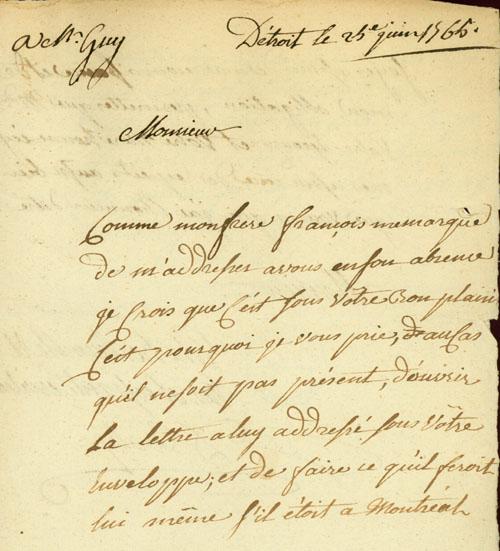 a Mr. Guy
Détroit le 25e juin 1765.
Monsieur
Comme mon frere françois me marque
de m'addresser a vous en son absence
je Crois que C'est sous Votre Bon plaisir
C'est pourquoi je vous prie, au Cas
qu'il ne soit pas présent, d'ouvrir
La lettre a luy addressé sous Vôtre
Enveloppe; et de faire ce qu'il feroit
lui même s'il étoit a Montréal